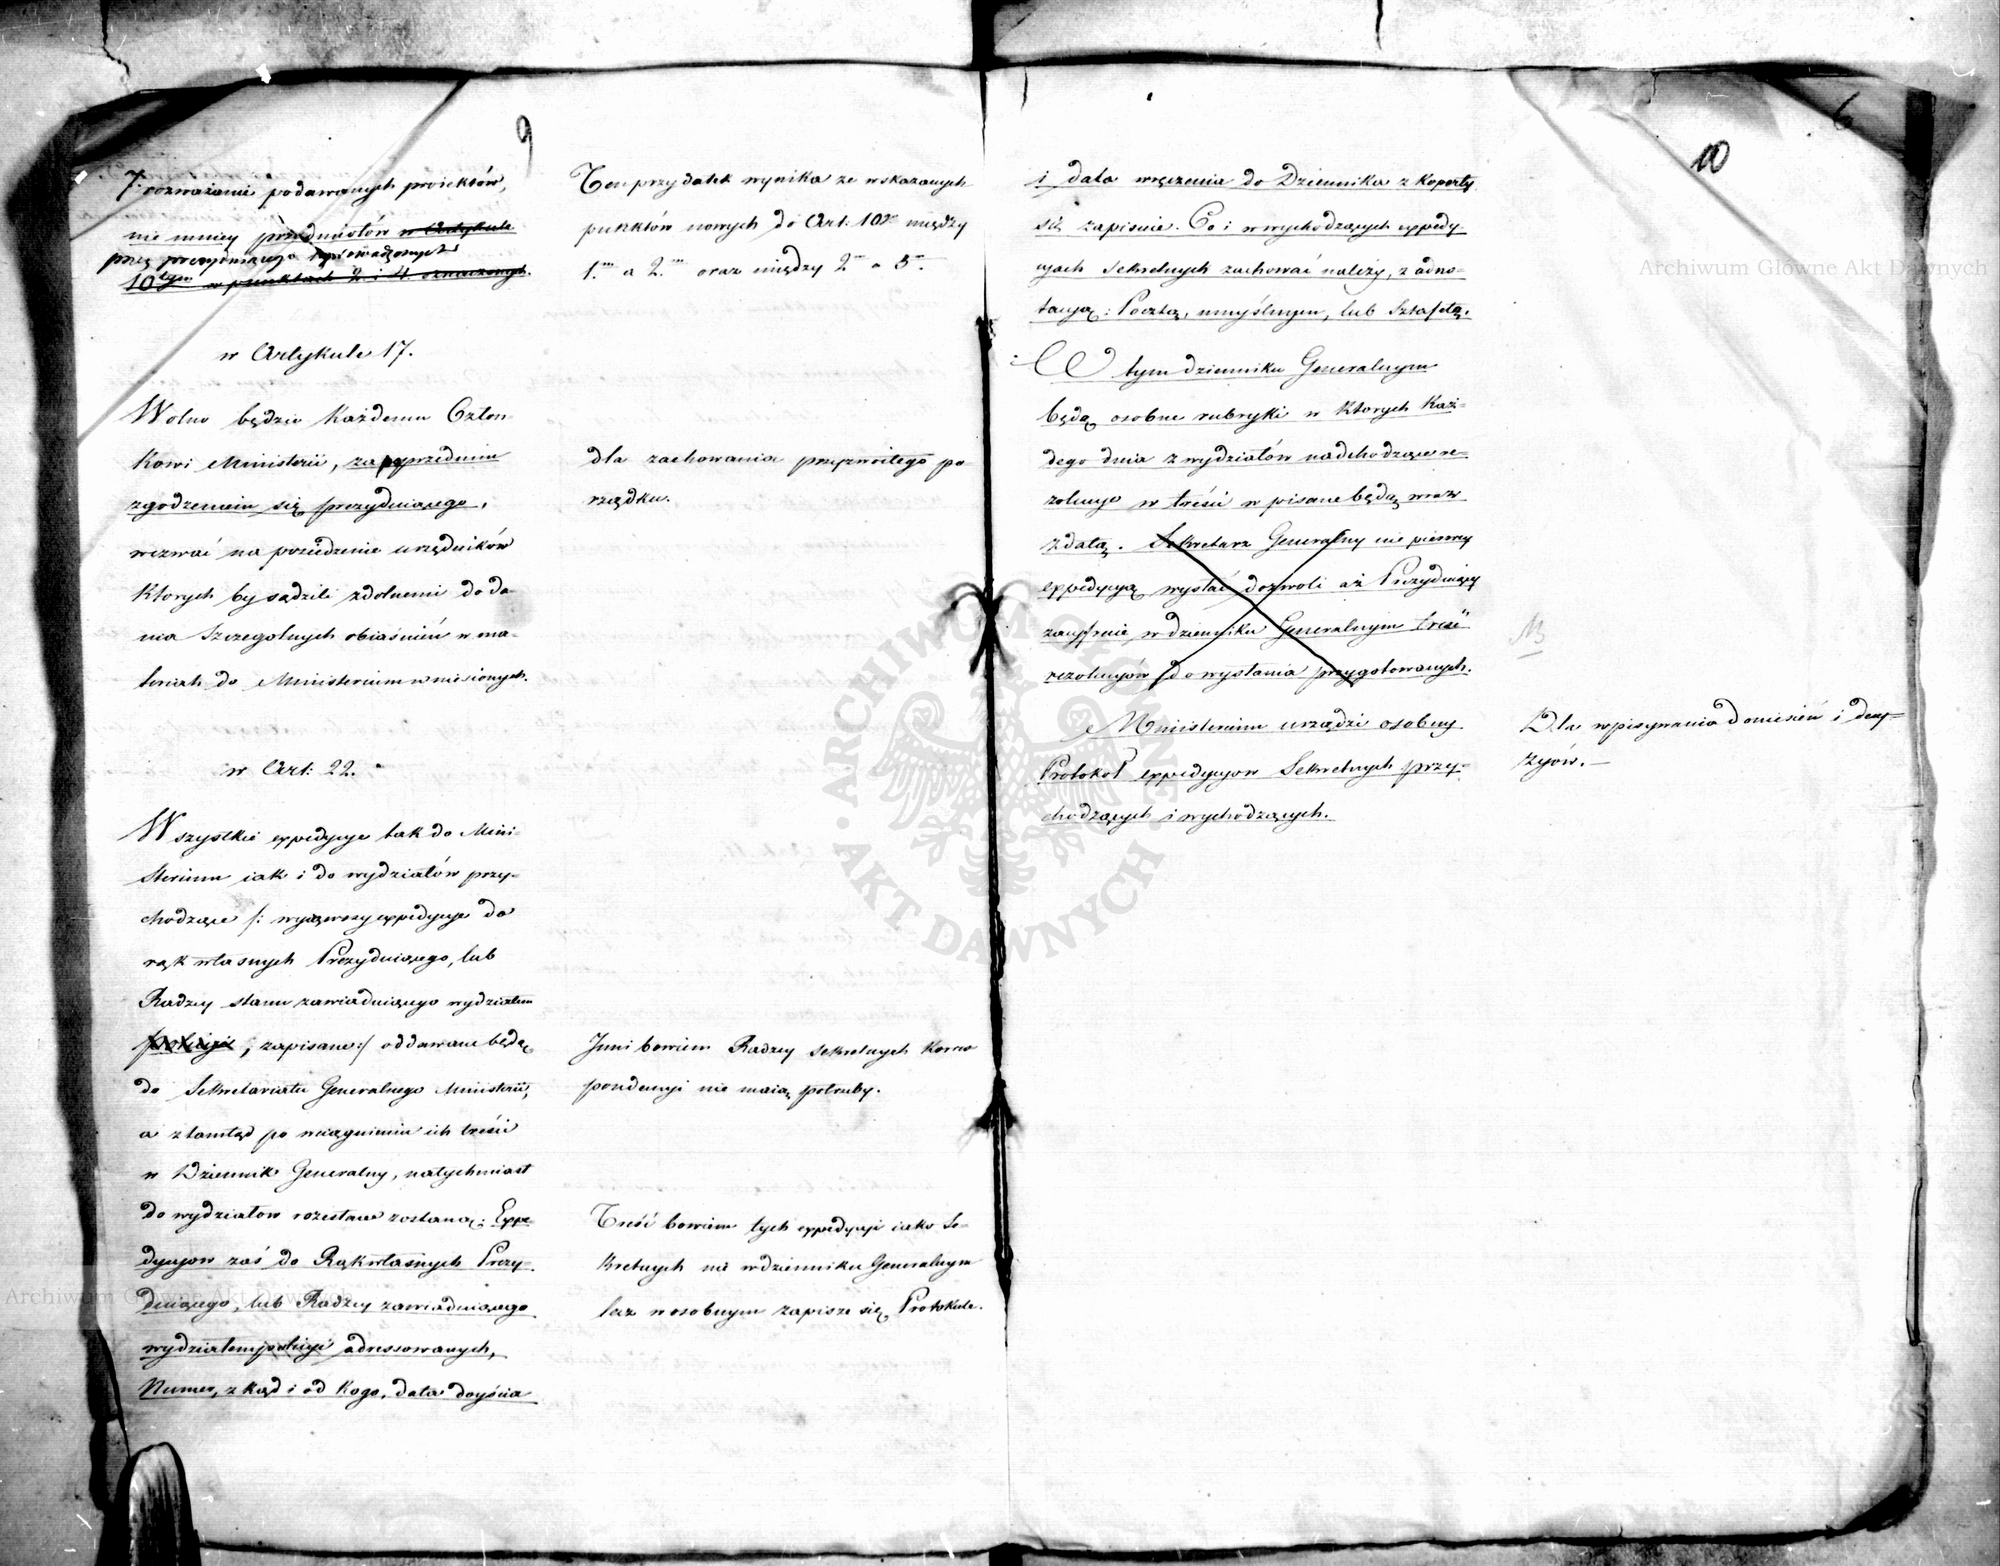 9
7. rozważanie podawanych proiektów,
nie mniey przedmiotów w Artykule
przez prezyduiącego wprowadzonych
10tym w punktach 2 i 4. oznaczonych.
w Artykule 17.
Wolno będzie Każdemu Człon-
kowi Ministerii, za poprzedniem
zgodzeniem się prezyduiącego,
wezwać na posiedzenie urzędników
Ktorych by sądzili zdolnemi do da-
nia Szczegolnych obiaśnień w ma-
teriach do Ministerium wniesionych.
w Art: 22.
Wszystkie expedycye tak do Mini-
sterium iak i do wydziałów przy-
chodzące /: wyiąwszy expedycye do
rąk własnych Prezyduiącego, lub
Radzcy stanu zawiaduiącego wydziałem
policyi, zapisane :/ oddawane będą
do Sekretariatu Generalnego Ministerii,
a ztamtąd po wciągnieniu ich treści
w Dziennik Generalny, natychmiast
do wydziałow rozesłane zostaną; Expe-
dycyow zaś do Rąk własnych Prezy-
duiącego, lub Radzcy zawiaduiącego
wydziałem policyi adressowanych,
Numer, z kąd i od Kogo, data doyścia
Ten przydatek wynika ze wskazanych
punktów nowych do Art: 10go między
1.m a 2.m oraz między 2m a 3m.
dla zachowania przyzwoitego po-
rządku.
Inni bowiem Radzcy Sekretnych Korres
pondencyi nie maią potrzeby.
Treść bowiem tych expedycyi iako Se-
kretnych nie w dzienniku Generalnym
lecz w osobnym zapisze się Protokule.
6
10
i data wręczenia do Dziennika z Koperty
się zapisuie. Co i w wychodzących expedy-
cyach Sekretnych zachować należy, z adno-
tacyą: Pocztą, umyślnym, lub Sztafetą.
W tym dzienniku Generalnym
będą osobne rubryki w Ktorych Każ-
dego dnia z wydziałów nadchodzące re-
zolucye w treści wpisane będą wraz
z datą. Sekretarz Generalny nie pierwey
expedycyą wysłać dozwoli aż Prezyduiący
zaufnuie w dzienniku Generalnym treść
rezolucyów do wysłania przygotowanych.
Ministerium urządzi osobny
Protokoł expedycyow Sekretnych przy-
chodzących i wychodzących.
Dla wpisywania doniesień i decy-
zyów. –
Archiwum Główne Akt Dawnych
Archiwum Główne Akt Dawnych
ARCHIWUM GŁÓWNE
AKT DAWNYCH